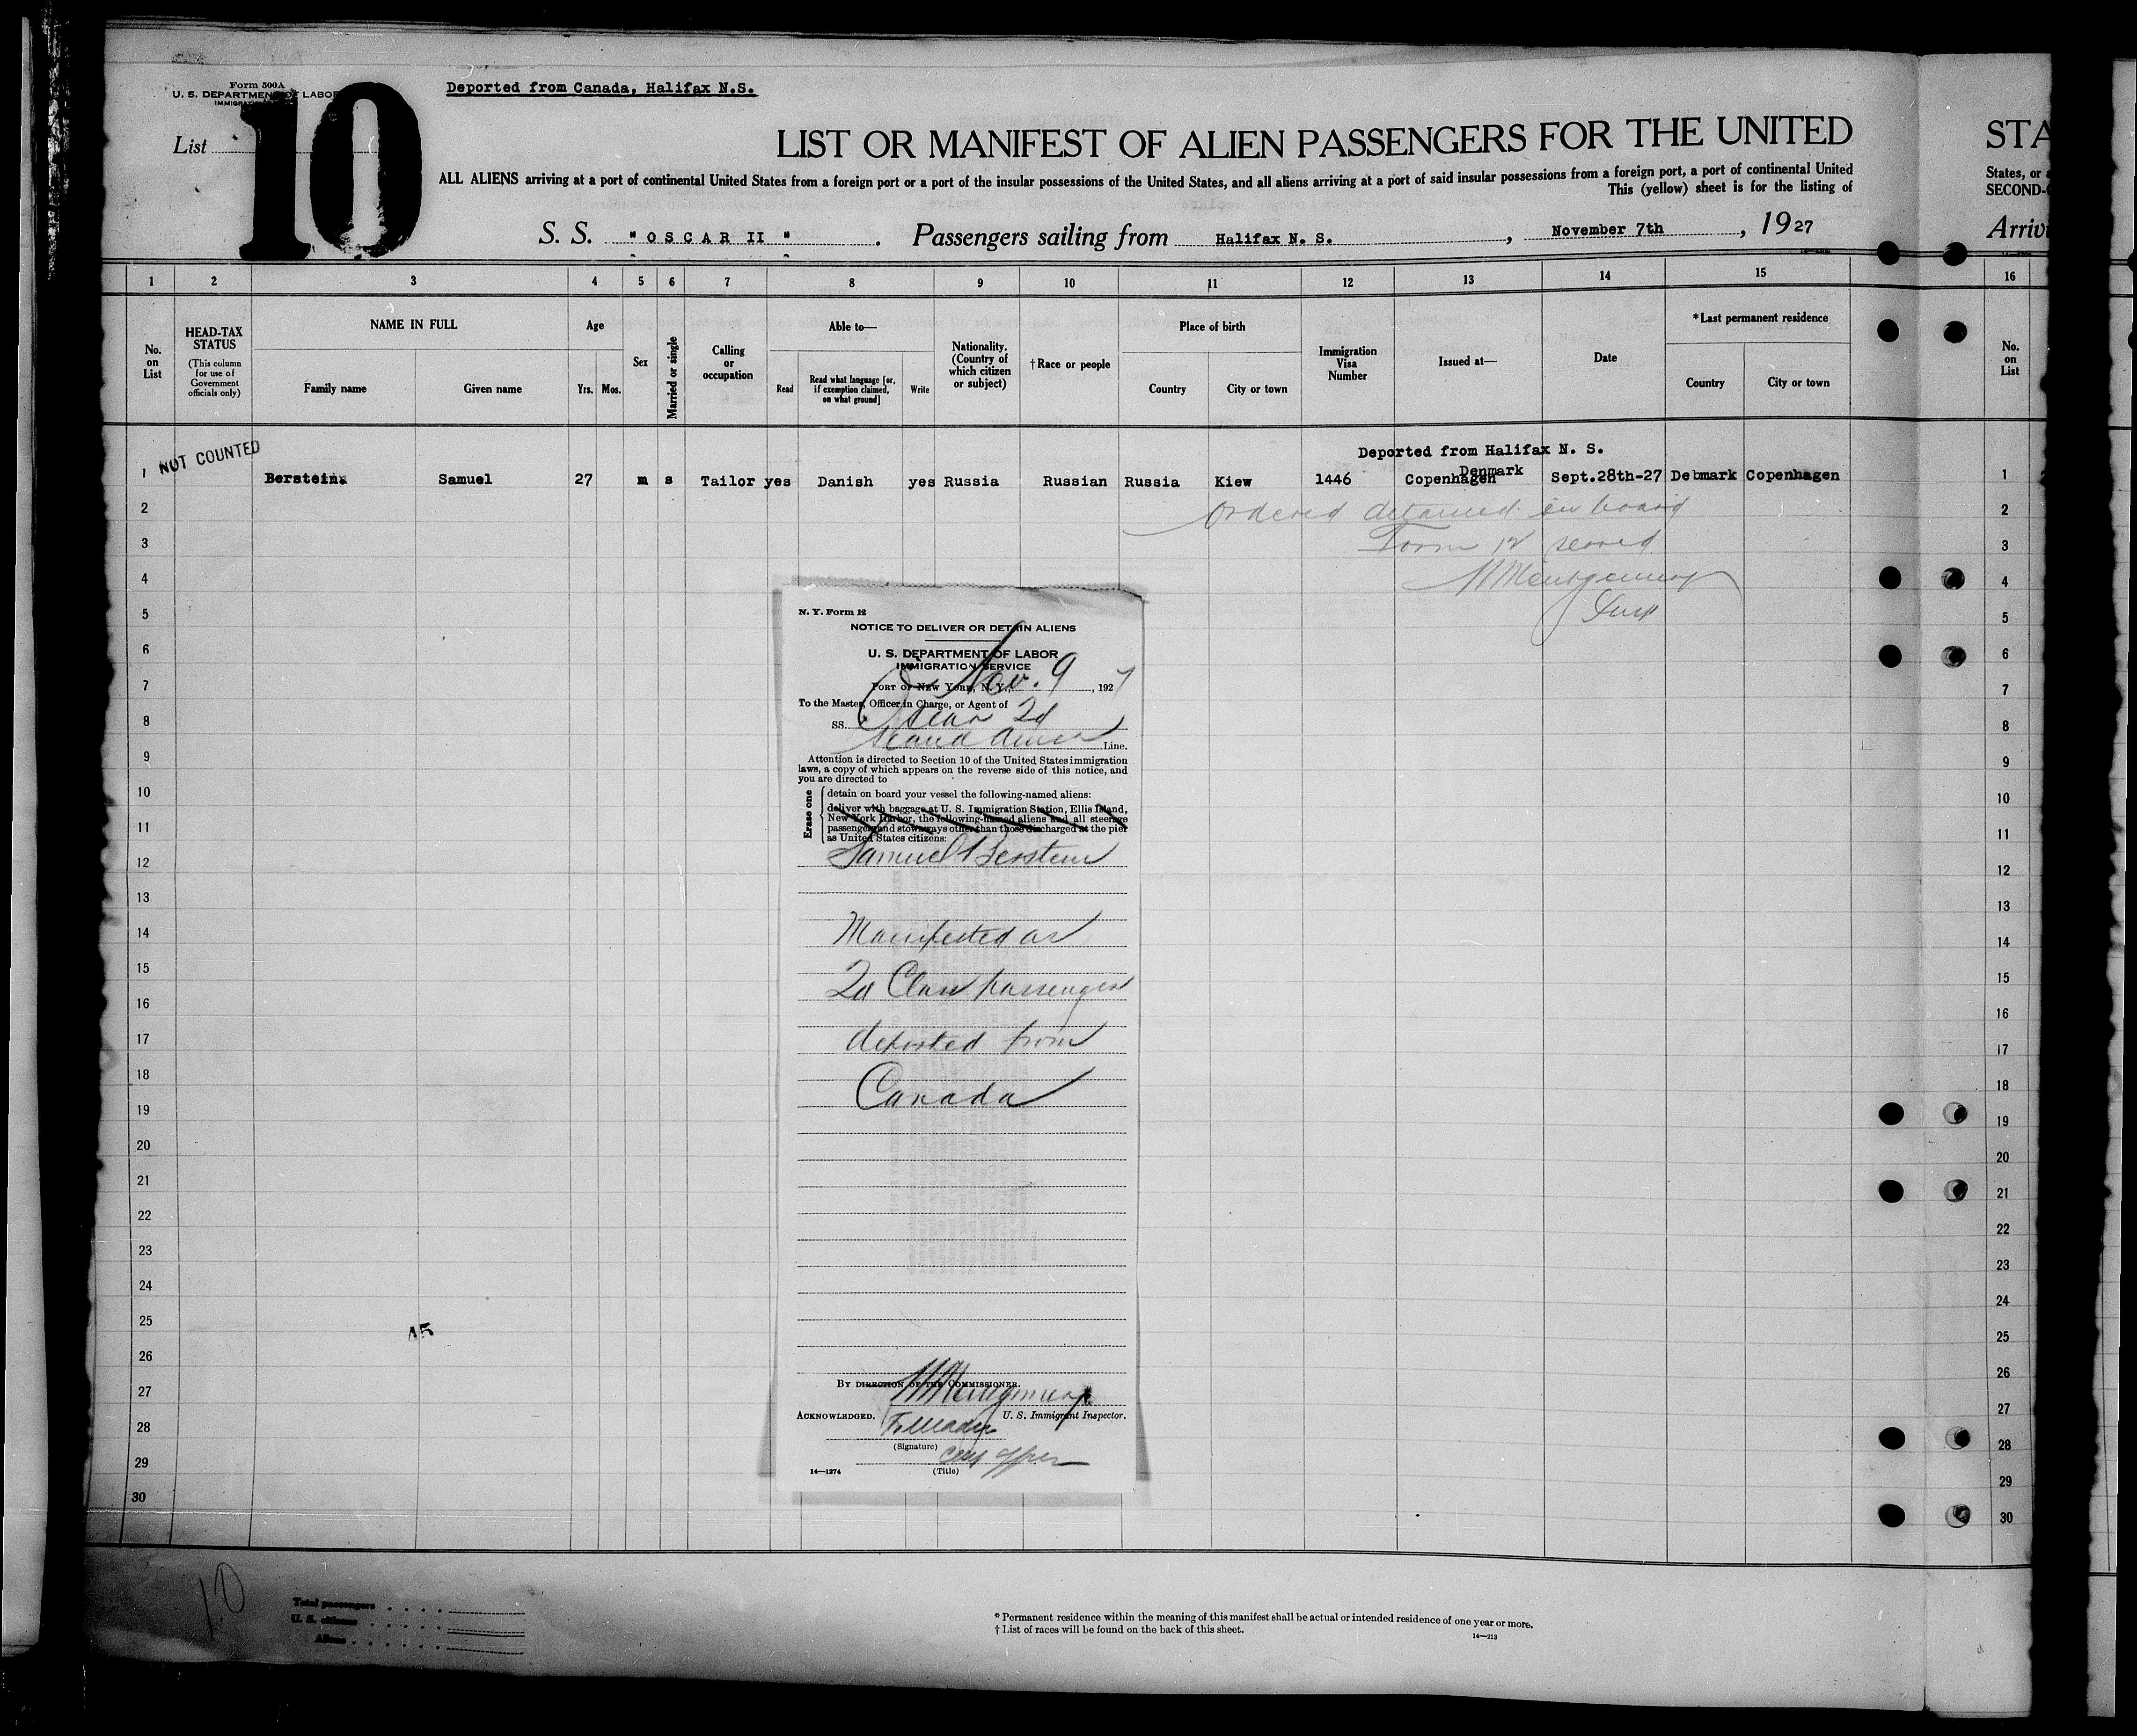 Form 500A
U. S. DEPARTMENT OF LABOR
Deported from Canada, Halifax N.S.
List 10
LIST OR MANIFEST OF ALIEN PASSENGERS FOR THE UNITED
STA
ALL ALIENS arriving at a port of continental United States from a foreign port or a port of the insular possessions of the United States, and all aliens arriving at a port of said insular possessions from a foreign port, a port of continental United
States, or a
This (yellow) sheet is for the listing of
SECOND-
S. S. "OSCAR II". Passengers sailing from Halifax N. S., November 7th, 1927
Arriv
1 2 3 4 5 6 7 8 9 10 11 12 13 14 15 16
No. on List
HEAD-TAX STATUS
(This column for use of Government officials only)
NAME IN FULL
Family name
Given name
Age
Yrs. Mos.
Sex
Married or single
Calling or occupation
Able to—
Read
Read what language [or, if exemption claimed, on what ground]
Write
Nationality. (Country of which citizen or subject)
†Race or people
Place of birth
Country
City or town
Immigration Visa Number
Issued at—
Date
*Last permanent residence
Country
City or town
No. on List
NOT COUNTED
Deported from Halifax N. S.
Denmark
1 Berstein Samuel 27 m s Tailor yes Danish yes Russia Russian Russia Kiew 1446 Copenhagen Sept.28th-27 Debmark Copenhagen 1
2 Ordered detained on board 2
3 Form 12 served 3
4 Montgomery 4
5 Insp 5
6 6
7 7
8 8
9 9
10 10
11 11
12 12
13 13
14 14
15 15
16 16
17 17
18 18
19 19
20 20
21 21
22 22
23 23
24 24
25 25
26 26
27 27
28 28
29 29
30 30
N. Y. Form 12
NOTICE TO DELIVER OR DETAIN ALIENS
U. S. DEPARTMENT OF LABOR
IMMIGRATION SERVICE
PORT OF NEW YORK, N. Y., Nov. 9, 1927
To the Master, Officer in Charge, or Agent of
SS. Oscar 2d
Scand Amer Line.
Attention is directed to Section 10 of the United States immigration
laws, a copy of which appears on the reverse side of this notice, and
you are directed to
Erase one
detain on board your vessel the following-named aliens:
deliver with baggage at U. S. Immigration Station, Ellis Island,
New York Harbor, the following-named aliens and all steerage
passengers and stowaways other than those discharged at the pier
as United States citizens:
Samuel Berstein
Manifested as
2d Class passenger
deported from
Canada
BY DIRECTION OF THE COMMISSIONER.
Montgomery
ACKNOWLEDGED.
U. S. Immigrant Inspector.
(Signature)
(Title)
14—1274
10
Total passengers
U. S. citizens
Aliens
* Permanent residence within the meaning of this manifest shall be actual or intended residence of one year or more.
† List of races will be found on the back of this sheet.
14—213